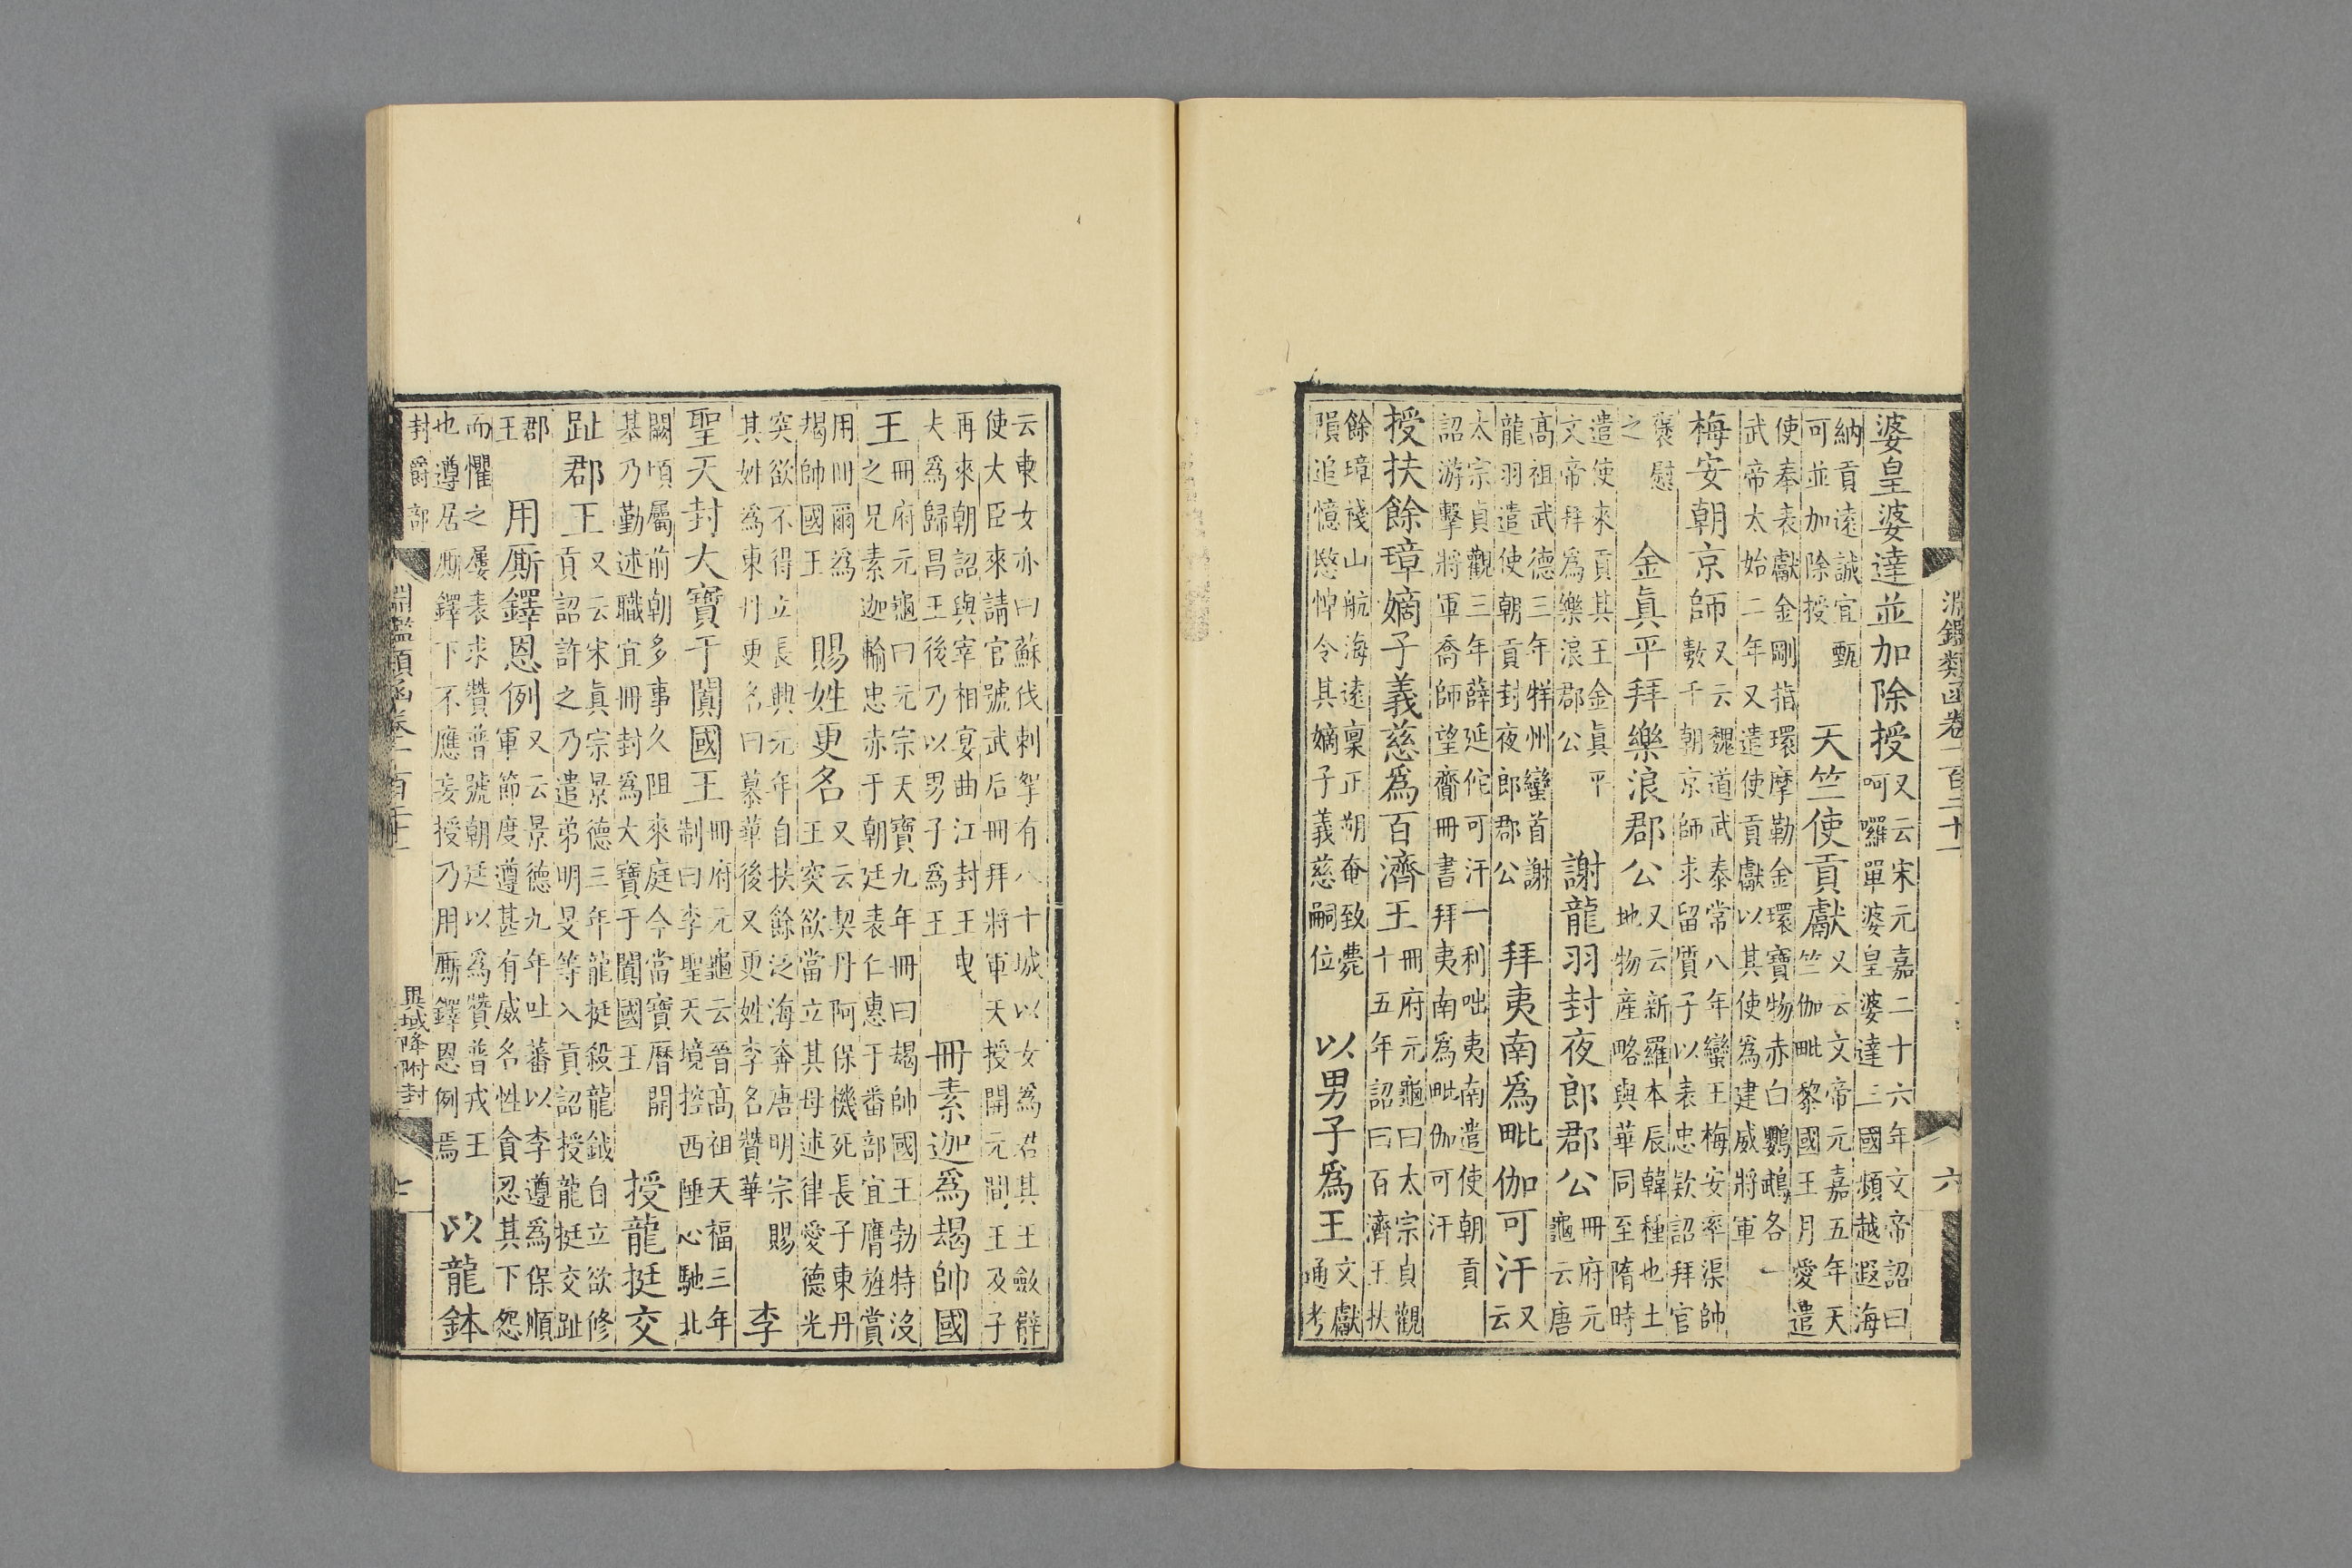 淵鑑類函卷一百二十一　六
婆皇婆達並加除授
又云宋元嘉二十六年文帝詔曰
呵囉單婆皇婆達三國頻越遐海
納貢遠誠宜甄
可並加除授
天竺使貢獻
又云文帝元嘉五年天
竺伽毗黎國王月愛遣
使奉表獻金剛指環摩勒金環寶物赤白鸚鵡各一
武帝太始二年又遣使貢獻以其使爲建威將軍
梅安朝京師
又云魏道武泰常八年蠻王梅安率渠帥
數千朝京師求留質子以表忠欵詔拜官
褒慰
之
金眞平拜樂浪郡公
又云新羅本辰韓種也土
地物産略與華同至隋時
遣使來貢其王金眞平
文帝拜爲樂浪郡公
謝龍羽封夜郎郡公
冊府元
龜云唐
高祖武德三年牂州蠻首謝
龍羽遣使朝貢封夜郎郡公
拜夷南爲毗伽可汗
又
云
太宗貞觀三年薛延佗可汗一利咄夷南遣使朝貢
詔游擊將軍喬師望齎冊書拜夷南爲毗伽可汗
授扶餘璋嫡子義慈爲百濟王
冊府元龜曰太宗貞觀
十五年詔曰百濟王扶
餘璋棧山航海遠稟正朔奄致薨
隕追憶愍悼令其嫡子義慈嗣位
以男子爲王
文獻
通考
云東女亦曰蘇伐剌挐有八十城以女爲君其王斂臂
使大臣來請官號武后冊拜將軍天授開元間王及子
再來朝詔與宰相宴曲江封王曳
夫爲歸昌王後乃以男子爲王
冊素迦爲朅帥國
王
冊府元龜曰元宗天寶九年冊曰朅帥國王勃特沒
之兄素迦輸忠赤于朝廷表仁惠于番部宜膺旌賞
用冊爾爲
朅帥國王
賜姓更名
又云契丹阿保機死長子東丹
王突欲當立其母述律愛德光
突欲不得立長興元年自扶餘泛海奔唐明宗賜
其姓爲東丹更名曰慕華後又更姓李名贊華
李
聖天封大寶于闐國王
冊府元龜云晉高祖天福三年
制曰李聖天境控西陲心馳北
闕頃屬前朝多事久阻來庭今當寶曆開
基乃勤述職宜冊封爲大寶于闐國王
授龍挺交
趾郡王
又云宋眞宗景德三年龍挺殺龍鉞自立欲修
貢詔許之乃遣弟明旻等入貢詔授龍挺交趾
郡
王
用厮鐸恩例
又云景德九年吐蕃以李遵爲保順
軍節度遵甚有威名性貪忍其下怨
而懼之屢表求贊普號朝廷以爲贊普戎王
也遵居厮鐸下不應妄授乃用厮鐸恩例焉
以龍鉢
封爵部　淵鑑類函卷一百二十一　異域降附封　七